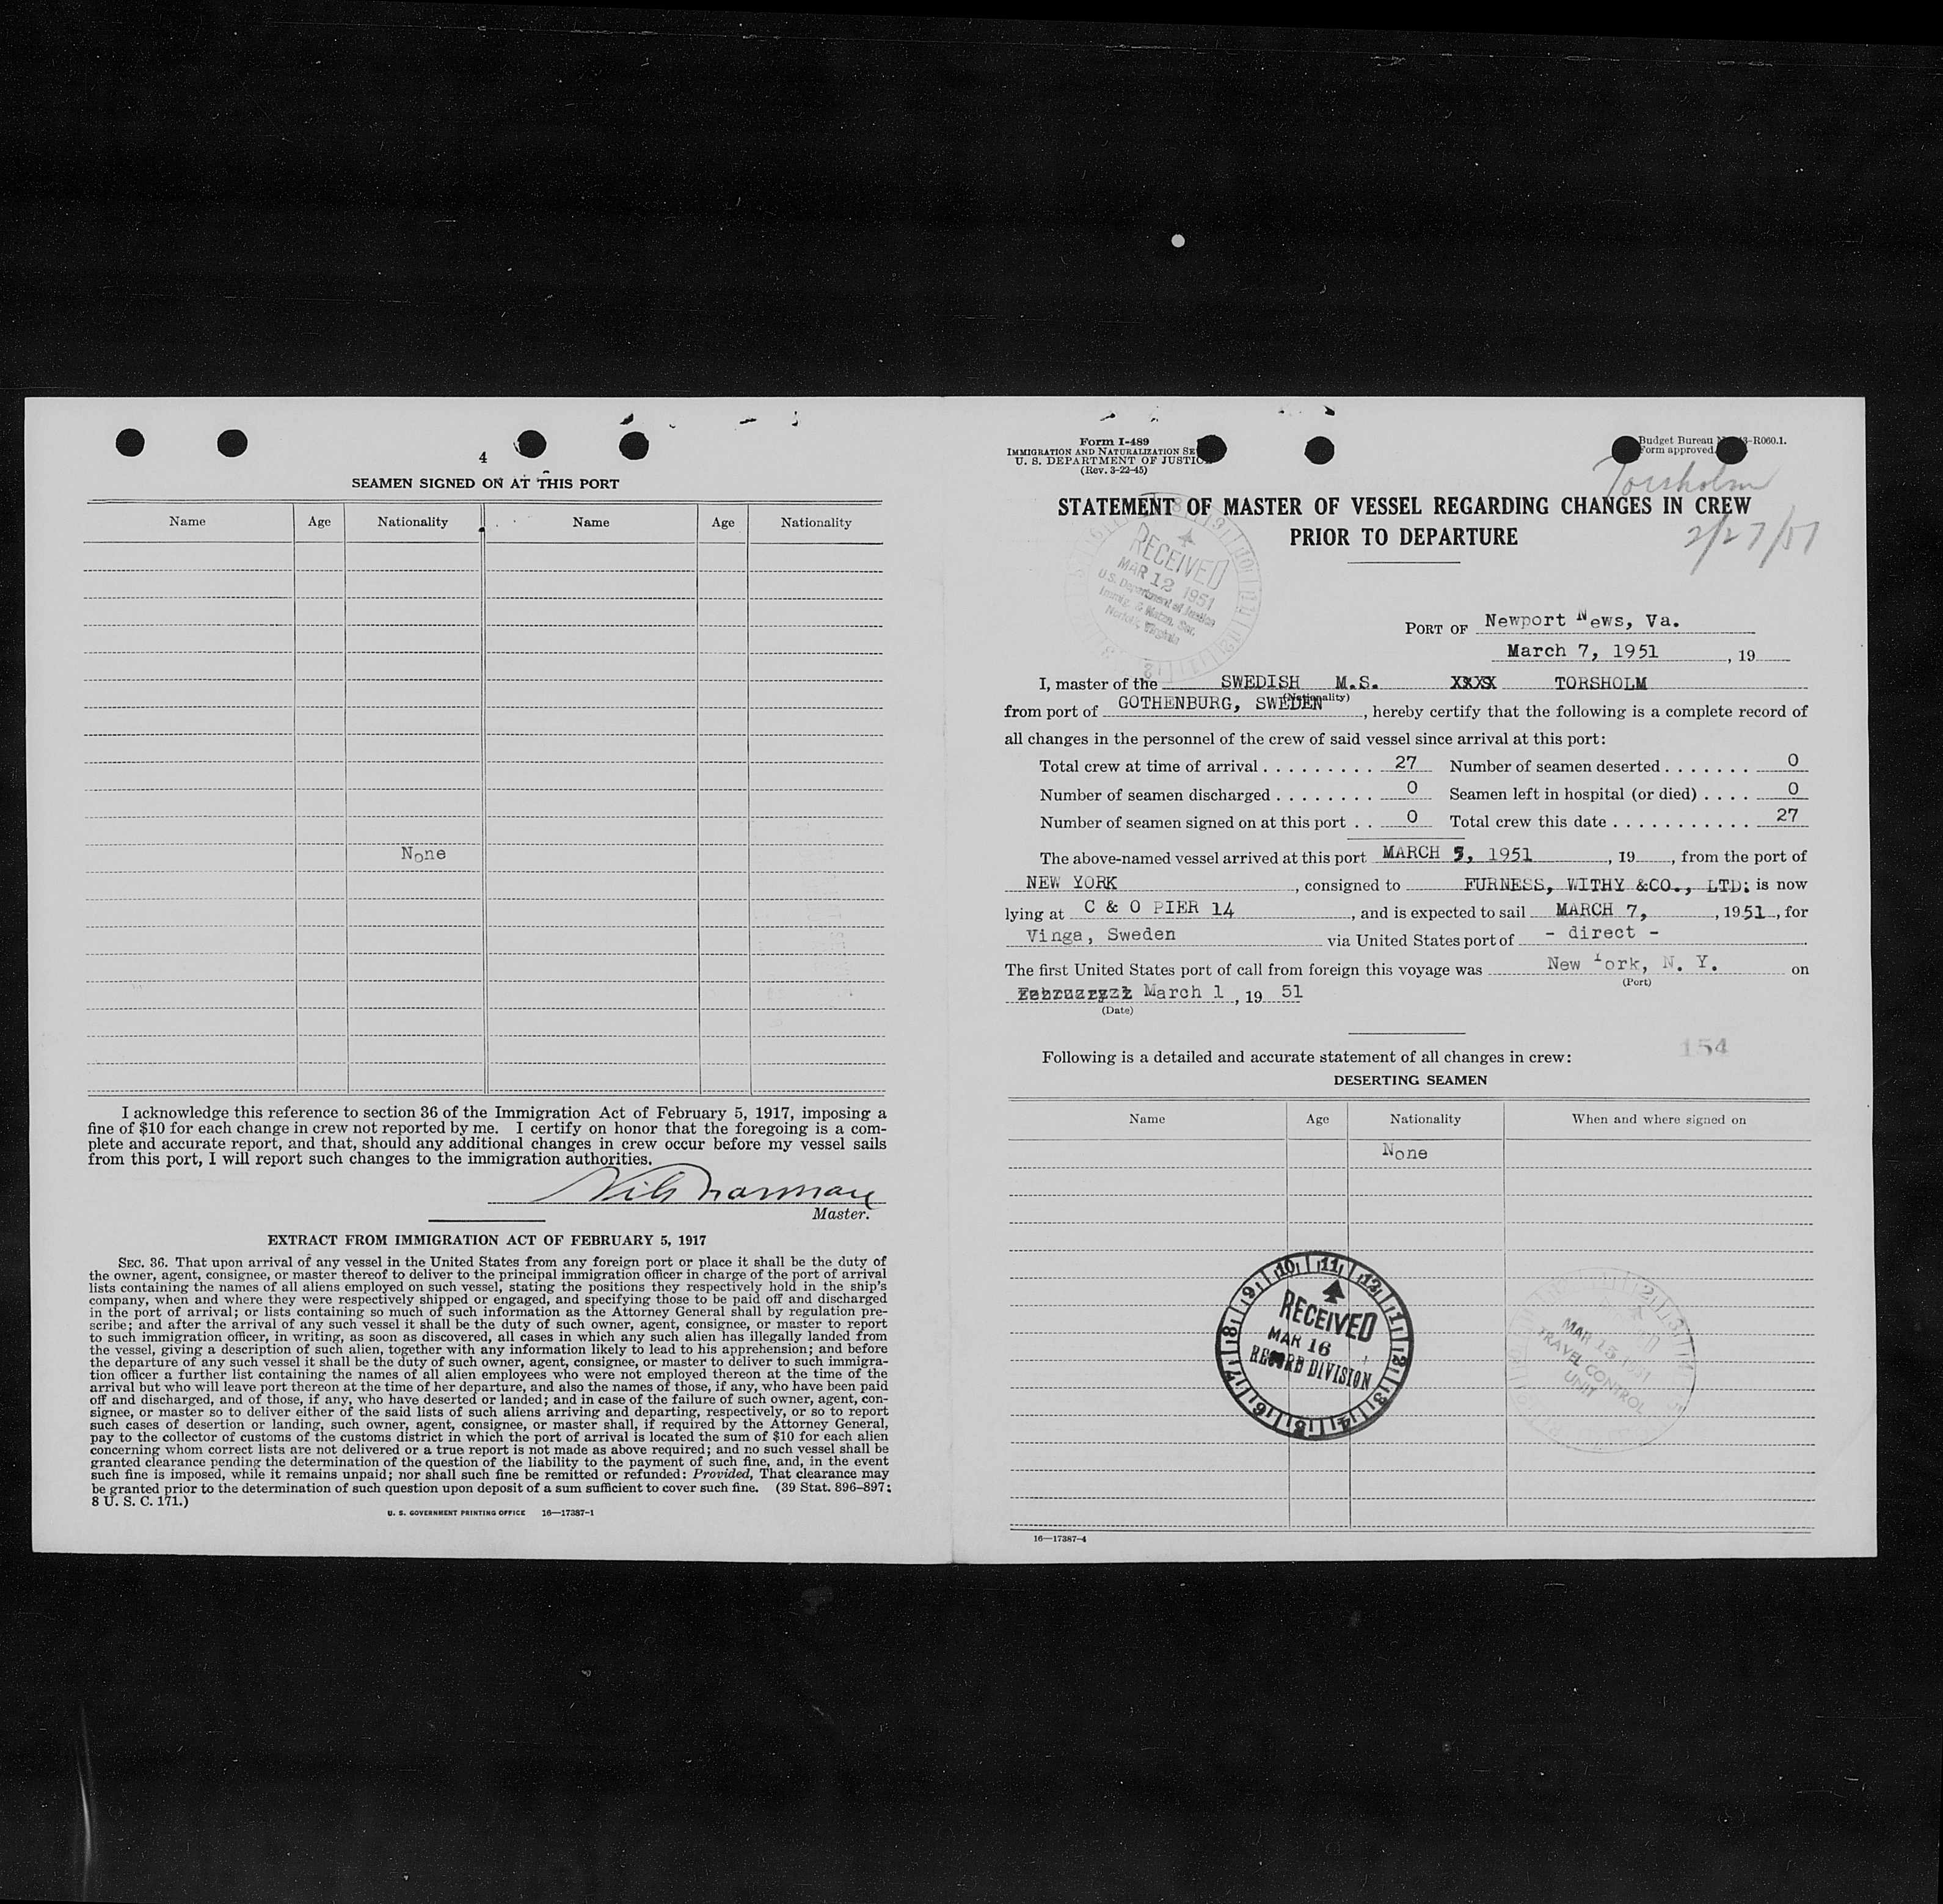 4
SEAMEN SIGNED ON AT THIS PORT
Name Age Nationality Name Age Nationality
None
I acknowledge this reference to section 36 of the Immigration Act of February 5, 1917, imposing a
fine of $10 for each change in crew not reported by me. I certify on honor that the foregoing is a com-
plete and accurate report, and that, should any additional changes in crew occur before my vessel sails
from this port, I will report such changes to the immigration authorities.
Master.
EXTRACT FROM IMMIGRATION ACT OF FEBRUARY 5, 1917
SEC. 36. That upon arrival of any vessel in the United States from any foreign port or place it shall be the duty of
the owner, agent, consignee, or master thereof to deliver to the principal immigration officer in charge of the port of arrival
lists containing the names of all aliens employed on such vessel, stating the positions they respectively hold in the ship's
company, when and where they were respectively shipped or engaged, and specifying those to be paid off and discharged
in the port of arrival; or lists containing so much of such information as the Attorney General shall by regulation pre-
scribe; and after the arrival of any such vessel it shall be the duty of such owner, agent, consignee, or master to report
to such immigration officer, in writing, as soon as discovered, all cases in which any such alien has illegally landed from
the vessel, giving a description of such alien, together with any information likely to lead to his apprehension; and before
the departure of any such vessel it shall be the duty of such owner, agent, consignee, or master to deliver to such immigra-
tion officer a further list containing the names of all alien employees who were not employed thereon at the time of the
arrival but who will leave port thereon at the time of her departure, and also the names of those, if any, who have been paid
off and discharged, and of those, if any, who have deserted or landed; and in case of the failure of such owner, agent, con-
signee, or master so to deliver either of the said lists of such aliens arriving and departing, respectively, or so to report
such cases of desertion or landing, such owner, agent, consignee, or master shall, if required by the Attorney General,
pay to the collector of customs of the customs district in which the port of arrival is located the sum of $10 for each alien
concerning whom correct lists are not delivered or a true report is not made as above required; and no such vessel shall be
granted clearance pending the determination of the question of the liability to the payment of such fine, and, in the event
such fine is imposed, while it remains unpaid; nor shall such fine be remitted or refunded: Provided, That clearance may
be granted prior to the determination of such question upon deposit of a sum sufficient to cover such fine. (39 Stat. 896-897;
8 U. S. C. 171.)
U. S. GOVERNMENT PRINTING OFFICE 16—17387-1
Form I-489
IMMIGRATION AND NATURALIZATION SE
U. S. DEPARTMENT OF JUSTIC
(Rev. 3-22-45)
Budget Bureau N 3-R060.1.
Form approved.
Torsholm
STATEMENT OF MASTER OF VESSEL REGARDING CHANGES IN CREW
PRIOR TO DEPARTURE
2/27/51
RECEIVED
MAR 12 1951
U.S. Department of Justice
Immig. & Natzn. Ser.
Norfolk, Virginia
PORT OF Newport News, Va.
March 7, 1951 , 19
I, master of the SWEDISH M.S. XXXX TORSHOLM
(Nationality)
from port of GOTHENBURG, SWEDEN , hereby certify that the following is a complete record of
all changes in the personnel of the crew of said vessel since arrival at this port:
Total crew at time of arrival . . . . . . . . . . 27 Number of seamen deserted . . . . . . . 0
Number of seamen discharged . . . . . . . . 0 Seamen left in hospital (or died) . . . . 0
Number of seamen signed on at this port . . 0 Total crew this date . . . . . . . . . . . 27
The above-named vessel arrived at this port MARCH 5, 1951 , 19 , from the port of
NEW YORK , consigned to FURNESS, WITHY &CO., LTD; is now
lying at C & O PIER 14 , and is expected to sail MARCH 7, , 1951 , for
Vinga, Sweden via United States port of - direct -
The first United States port of call from foreign this voyage was New York, N. Y. on
(Port)
March 1 , 19 51
(Date)
154
Following is a detailed and accurate statement of all changes in crew:
DESERTING SEAMEN
Name Age Nationality When and where signed on
None
RECEIVED
MAR 16
RECORD DIVISION
MAR 15 1951
TRAVEL CONTROL
UNIT
16—17387-4